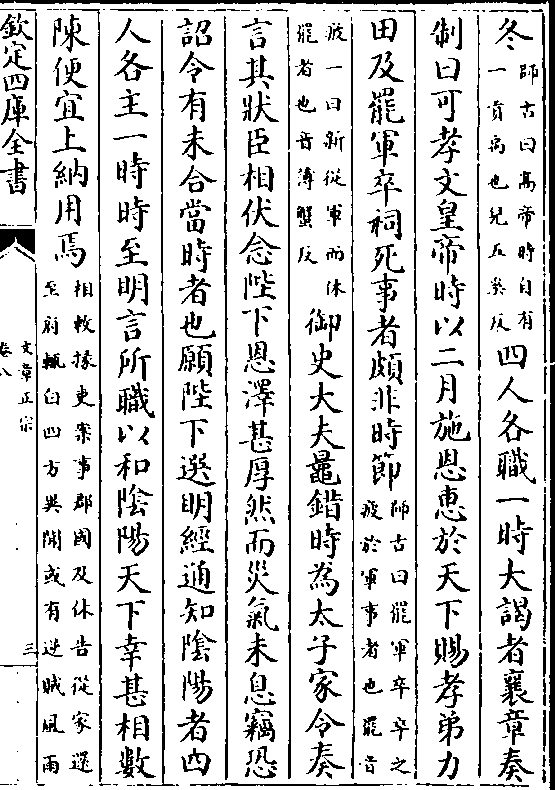 冬師古曰高帝時自有一貢禹也兒五奚反四人各職一時大謁者襄章奏
制曰可孝文皇帝時以二月施恩惠於天下賜孝弟力
田及罷軍卒祠死事者頗非時節師古曰罷軍卒卒之疲於軍事者也罷音
疲一曰新從軍而休罷者也音薄蟹反御史大夫鼂錯時為太子家令奏
言其狀臣相伏念陛下恩澤甚厚然而災氣未息竊恐
詔令有未合當時者也願陛下選明經通知陰陽者四
人各主一時時至明言所職以和陰陽天下幸甚相數
陳便宜上納用焉相敕掾吏案事郡國及休告從家還至府輒白四方異聞或有逆賊風雨
欽定四庫全書
文章正宗
卷八
三